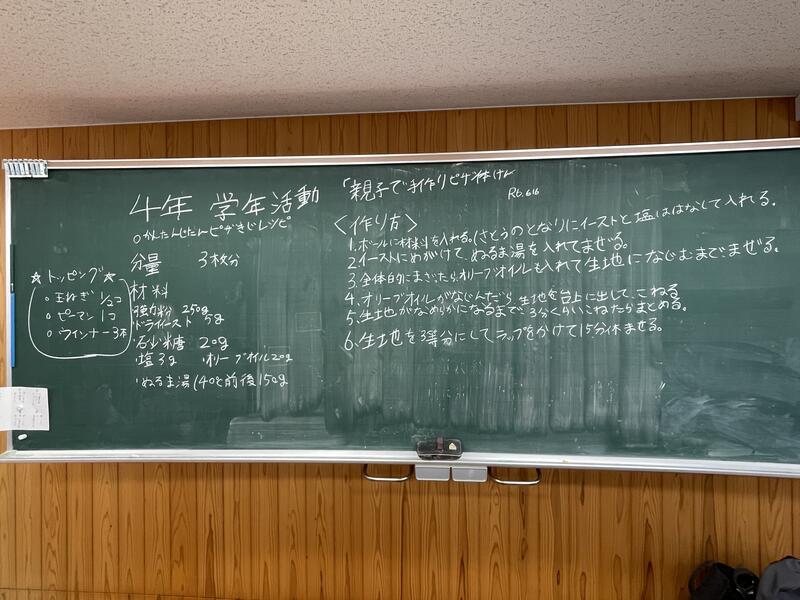 4年 学年活動
「親子で手作りピザ体けん
R6.6.16
○かんたんじたんピザきじレシピ
分量 3枚分
材料
・強力粉 250g
・ドライイースト 5g
・砂糖 20g
・塩3g ・オリーブオイル20g
・ぬるま湯(40℃前後150g
☆トッピング☆
○玉ねぎ 1/2コ
○ピーマン 1コ
○ウインナー3本
<作り方>
1.ボールに材料を入れる。(さとうのとなりにイーストと塩ははなして入れる。
2.イーストにめがけて、ぬるま湯を入れてまぜる。
3.全体的にまざったら、オリーブオイルも入れて生地になじむまで、まぜる。
4.オリーブオイルがなじんだら、生地を台上に出して、こねる
5.生地がなめらかになるまで、3分くらいこねたらまとめる。
6.生地を3等分にしてラップをかけて15分休ませる。